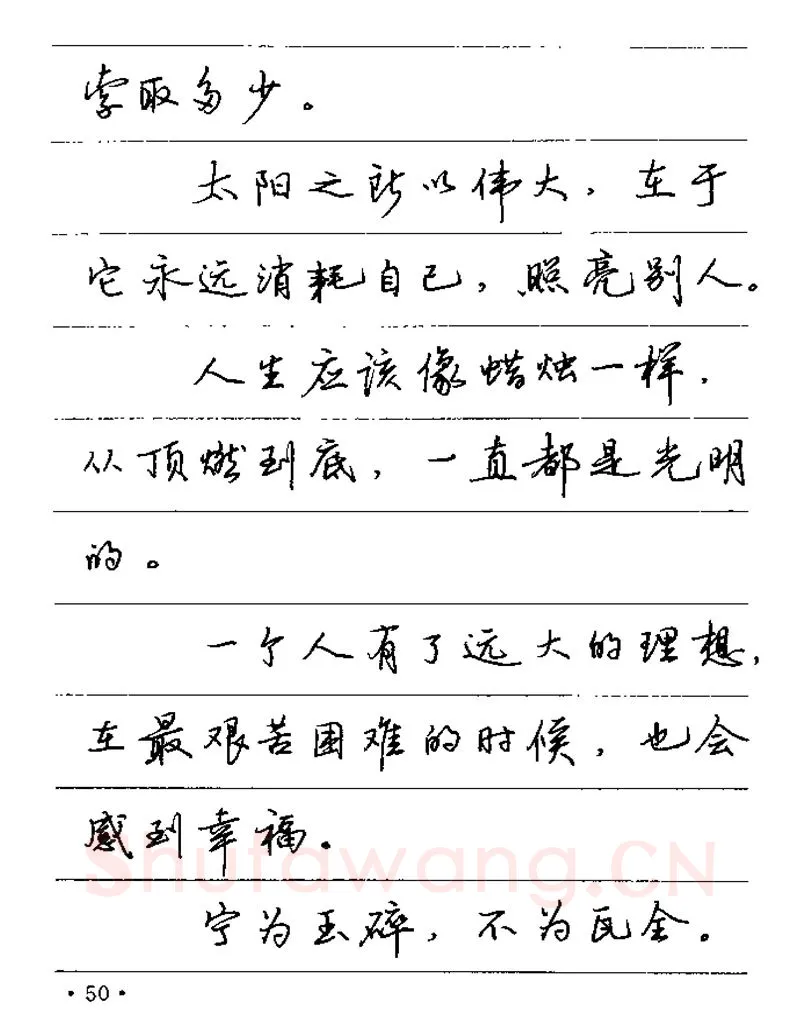 索取多少。
太阳之所以伟大，在于
它永远消耗自己，照亮别人。
人生应该像蜡烛一样，
从顶燃到底，一直都是光明
的。
一个人有了远大的理想，
在最艰苦困难的时候，也会
感到幸福.
Shufawang.CN
宁为玉碎，不为瓦全。
·50·